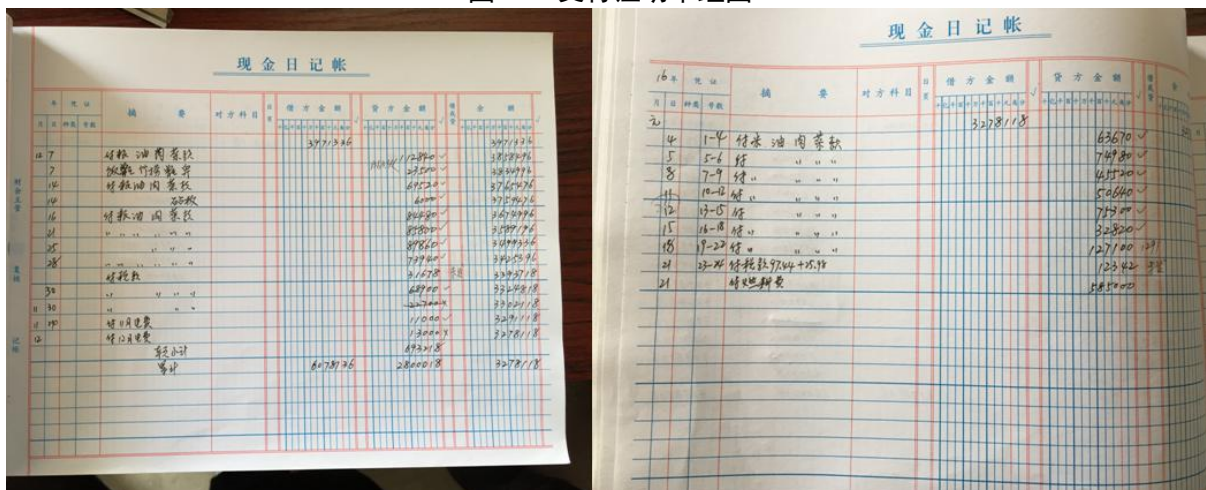 现金日记帐
年 凭证 摘要 对方科目 日页 借方金额 √ 贷方金额 √ 借或贷 余额
月 日 种类 号数
3971336 3971336
12 7 付粮油肉菜款 112840 √ 3858496
7 23500 √ 3834996
14 付粮油肉菜款 69520 √ 3765476
14 6000 √ 3759476
16 付粮油肉菜款 84480 √ 3674996
21 〃 〃 〃 〃 〃 85800 √ 3589196
25 〃 〃 〃 89860 √ 3499336
28 〃 〃 〃 〃 〃 73940 √ 3425396
付税款 31678 3393718
30 〃 〃 〃 〃 68900 √ 3324818
11 30 〃 〃 〃 22700 3302118
付11月电费 11000 √ 3291118
12 付12月电费 13000 3278118
693218
累计 6078136 2800018 3278118
财会主管
复核
记帐
现金日记帐
16年 凭证 摘要 对方科目 日页 借方金额 √ 贷方金额 √ 借或贷
月 日 种类 号数
3278118
4 1-4 付米油肉菜款 63670 √
5 5-6 付 〃 〃 〃 74980 √
8 7-9 付 〃 〃 〃 〃 43520 √
11 10-12 付 〃 〃 〃 〃 50640 √
12 13-15 付 〃 〃 〃 75300 √
15 16-18 付 〃 〃 〃 〃 32820 √
18 19-22 付 〃 〃 〃 〃 127100
21 23-24 付税款97.44+25.98 12342
21 付燃料费 585000